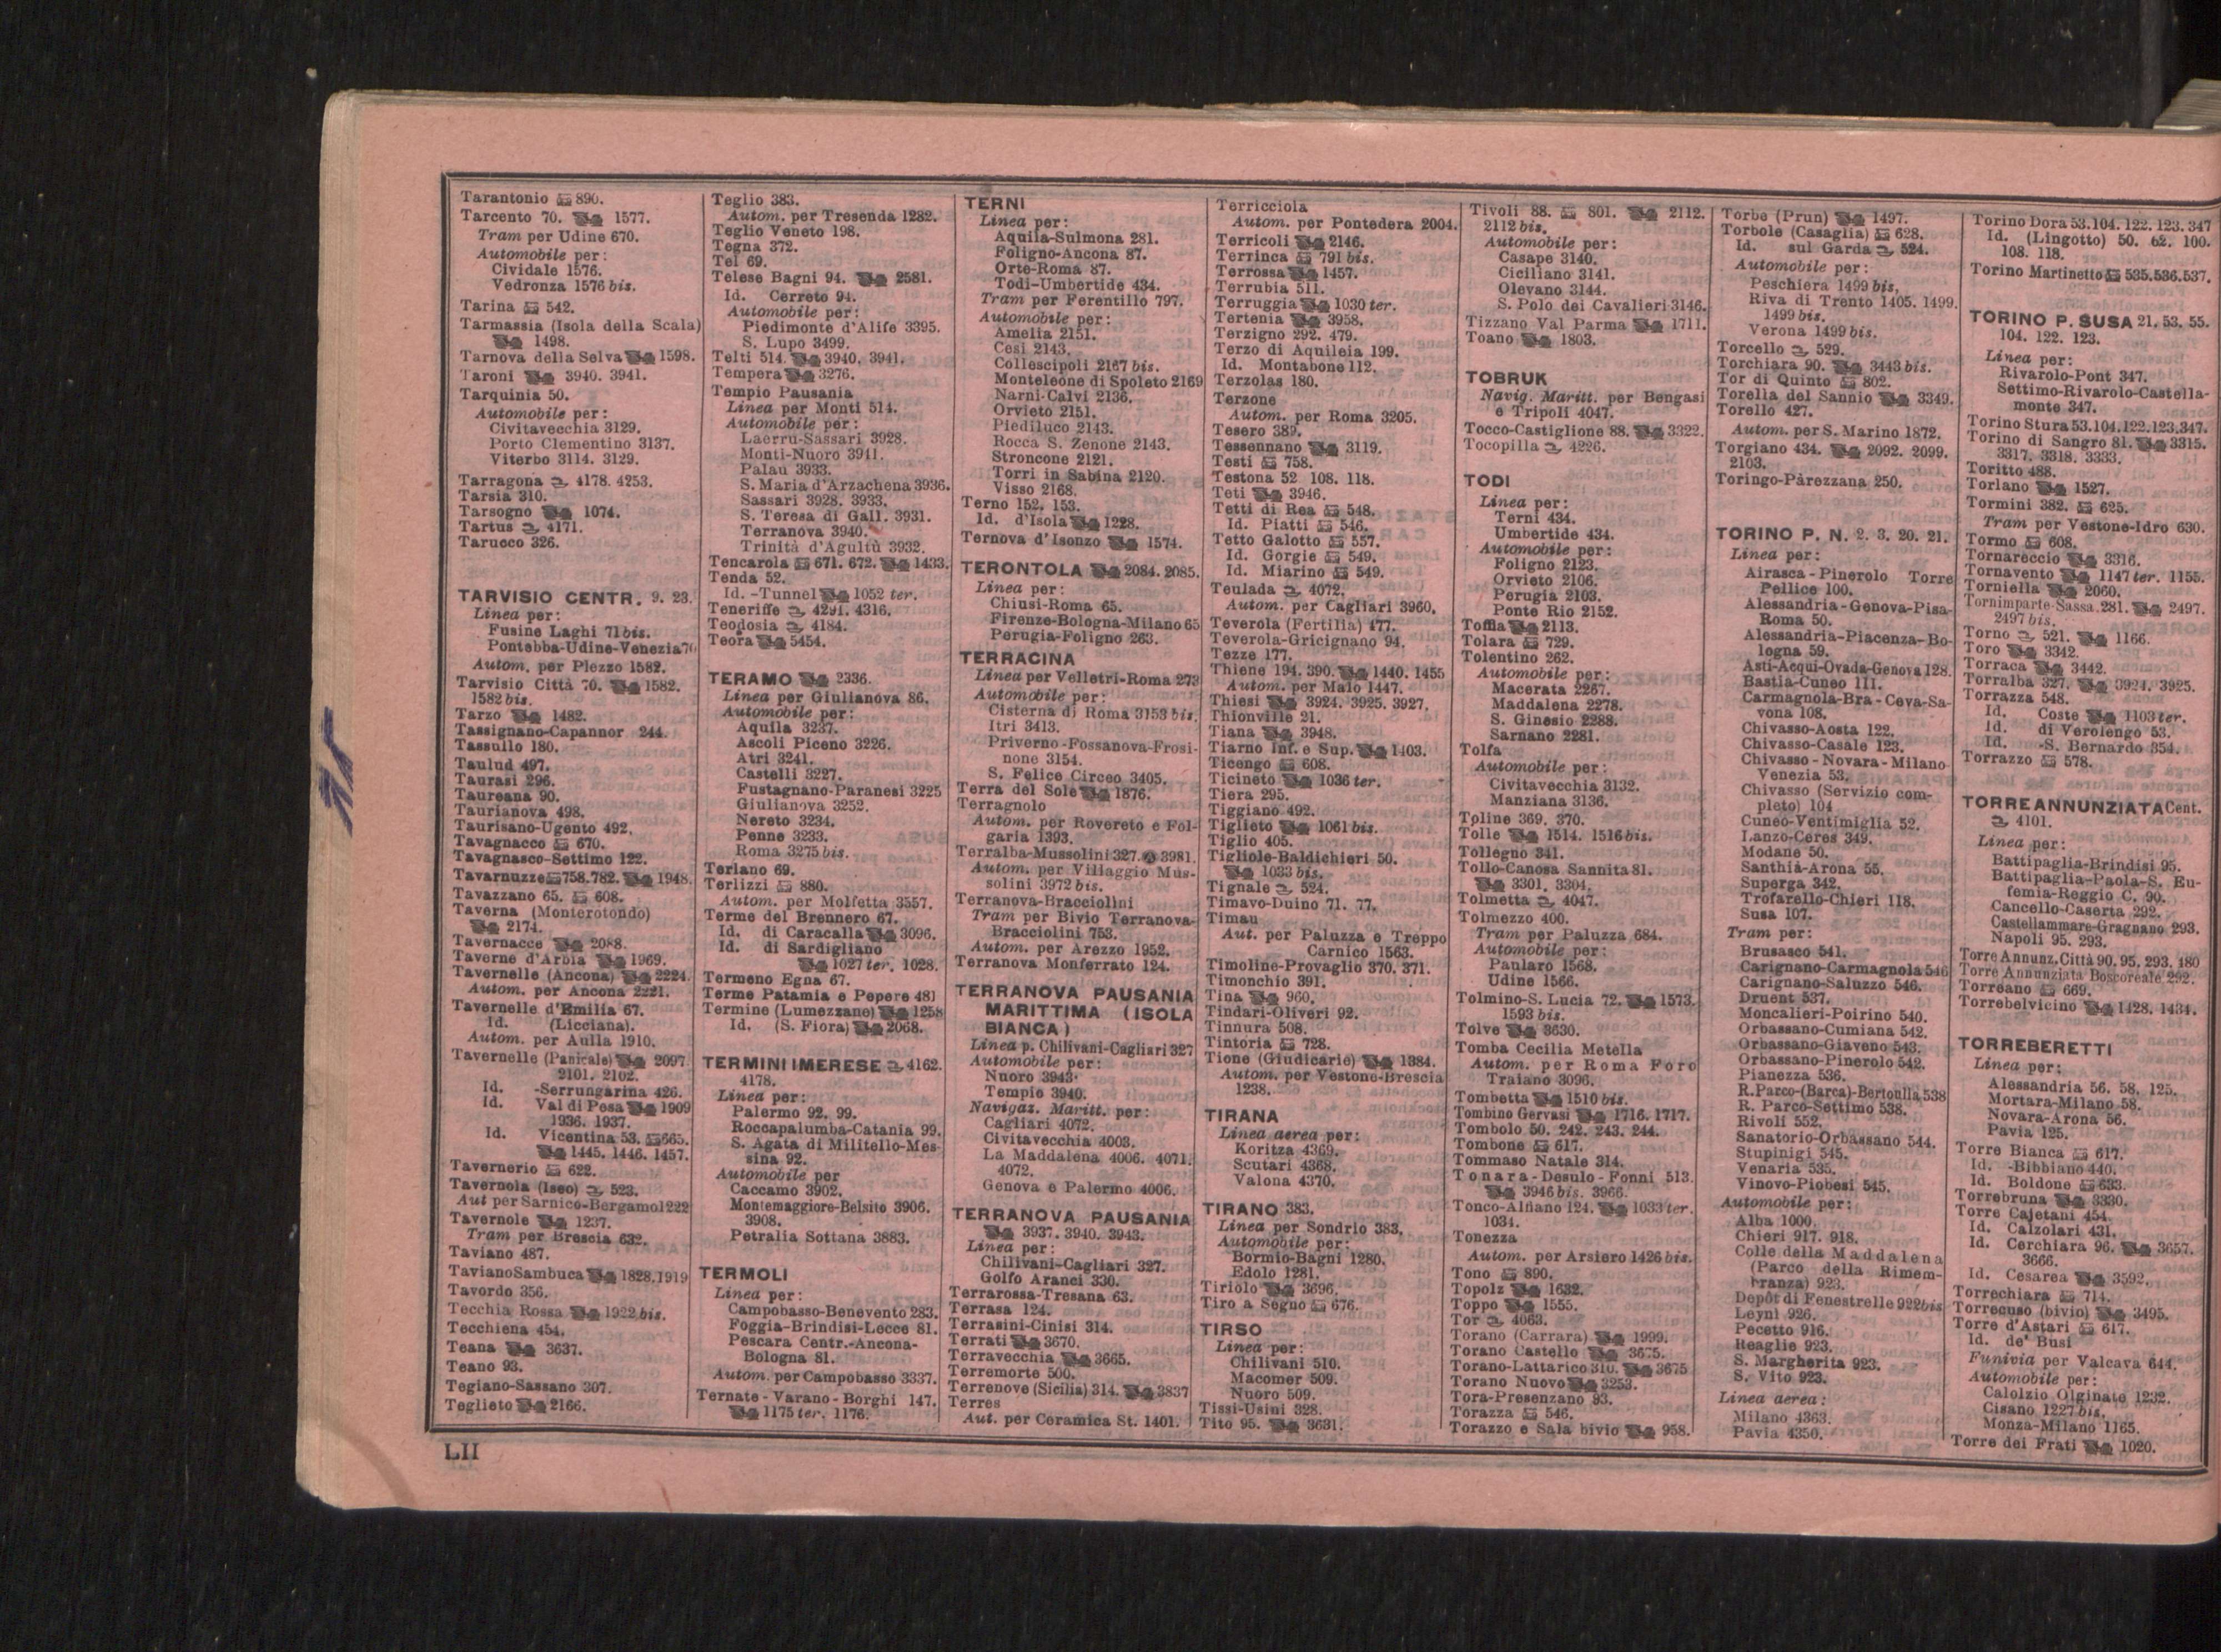 Tarantonio 890.
Tarcento 70. 1577.
Tram per Udine 670.
Automobile per:
Cividale 1576.
Vedronza 1576 bis.
Tarina 542.
Tarmassia (Isola della Scala)
1498.
Tarnova della Selva 1598.
Taroni 3940. 3941.
Tarquinia 50.
Automobile per:
Civitavecchia 3129.
Porto Clementino 3137.
Viterbo 3114. 3129.
Tarragona 4178. 4253.
Tarsia 310.
Tarsogno 1074.
Tartus 4171.
Tarucco 326.
TARVISIO CENTR. 9. 23.
Linea per:
Fusine Laghi 71 bis.
Pontebba-Udine-Venezia
Autom. per Plezzo 1582.
Tarvisio Città 70. 1582.
1582 bis.
Tarzo 1482.
Tassignano-Capannor 244.
Tassullo 180.
Taulud 497.
Taurasi 296.
Taureana 90.
Taurianova 498.
Taurisano-Ugento 492.
Tavagnacco 670.
Tavagnasco-Settimo 122.
Tavarnuzze 758.782. 1948.
Tavazzano 65. 608.
Taverna (Monterotondo)
2174.
Tavernacce 2088.
Taverne d'Arbia 1969.
Tavernelle (Ancona) 2224.
Autom. per Ancona 2221.
Tavernelle d'Emilia 67.
Id. (Licciana).
Autom. per Aulla 1910.
Tavernelle (Panicale) 2097
2101. 2102.
Id. -Serrungarina 426.
Id. Val di Pesa 1909
1936. 1937.
Id. Vicentina 53. 665.
1445. 1446. 1457.
Tavernerio 622.
Tavernola (Iseo) 523.
Aut per Sarnico-Bergamo 1222
Tavernole 1237.
Tram per Brescia 632.
Taviano 487.
Taviano Sambuca 1828.1919
Tavordo 356.
Tecchia Rossa 1922 bis.
Tecchiena 454.
Teana 3637.
Teano 93.
Tegiano-Sassano 307.
Teglieto 2166.
Teglio 383.
Autom. per Tresenda 1282.
Teglio Veneto 198.
Tegna 372.
Tel 69.
Telese Bagni 94. 2581.
Id. Cerreto 94.
Automobile per:
Piedimonte d'Alife 3395.
S. Lupo 3499.
Telti 514. 3940. 3941.
Tempera 3276.
Tempio Pausania
Linea per Monti 514.
Automobile per:
Laerru-Sassari 3928.
Monti-Nuoro 3941.
Palau 3933.
S. Maria d'Arzachena 3936.
Sassari 3928. 3933.
S. Teresa di Gall. 3931.
Terranova 3940.
Trinità d'Agultù 3932.
Tencarola 671. 672. 1433.
Tenda 52.
Id. -Tunnel 1052 ter.
Teneriffe 4291. 4316.
Teodosia 4184.
Teora 5454.
TERAMO 2336.
Linea per Giulianova 86.
Automobile per:
Aquila 3237.
Ascoli Piceno 3226.
Atri 3241.
Castelli 3227.
Fustagnano-Paranesi 3225
Giulianova 3252.
Nereto 3234.
Penne 3233.
Roma 3275 bis.
Terlano 69.
Terlizzi 880.
Autom. per Molfetta 3557.
Terme del Brennero 67.
Id. di Caracalla 3096.
Id. di Sardigliano
1027 ter. 1028.
Termeno Egna 67.
Terme Patamia e Pepere 481
Termine (Lumezzane) 1258
Id. (S. Fiora) 2068.
TERMINI IMERESE 4162.
4178.
Linea per:
Palermo 92. 99.
Roccapalumba-Catania 99.
S. Agata di Militello-Mes-
sina 92.
Automobile per
Caccamo 3902.
Montemaggiore-Belsito 3906.
3908.
Petralia Sottana 3883.
TERMOLI
Linea per:
Campobasso-Benevento 283.
Foggia-Brindisi-Lecce 81.
Pescara Centr.-Ancona-
Bologna 81.
Autom. per Campobasso 3337.
Ternate - Varano - Borghi 147.
1175 ter. 1176.
TERNI
Linea per:
Aquila-Sulmona 281.
Foligno-Ancona 87.
Orte-Roma 87.
Todi-Umbertide 434.
Tram per Ferentillo 797.
Automobile per:
Amelia 2151.
Cesi 2143.
Collescipoli 2167 bis.
Monteleone di Spoleto 2169
Narni-Calvi 2136.
Orvieto 2151.
Piediluco 2143.
Rocca S. Zenone 2143.
Stroncone 2121.
Torri in Sabina 2120.
Visso 2168.
Terno 152. 153.
Id. d'Isola 1228.
Ternova d'Isonzo 1574.
TERONTOLA 2084. 2085.
Linea per:
Chiusi-Roma 65.
Firenze-Bologna-Milano 65
Perugia-Foligno 263.
TERRACINA
Linea per Velletri-Roma 273
Automobile per:
Cisterna di Roma 3153 bis.
Itri 3413.
Priverno-Fossanova-Frosi-
none 3154.
S. Felice Circeo 3405.
Terra del Sole 1876.
Terragnolo
Autom. per Rovereto e Fol-
garia 1393.
Terralba-Mussolini 327. 3981.
Autom. per Villaggio Mus-
solini 3972 bis.
Terranova-Bracciolini
Tram per Bivio Terranova-
Bracciolini 753.
Autom. per Arezzo 1952.
Terranova Monferrato 124.
TERRANOVA PAUSANIA
MARITTIMA (ISOLA
BIANCA)
Linea p. Chilivani-Cagliari 327
Automobile per:
Nuoro 3943.
Tempio 3940.
Navigaz. Maritt. per:
Cagliari 4072.
Civitavecchia 4003.
La Maddalena 4006. 4071.
4072.
Genova e Palermo 4006.
TERRANOVA PAUSANIA
3937. 3940. 3943.
Linea per:
Chilivani-Cagliari 327.
Golfo Aranci 330.
Terrarossa-Tresana 63.
Terrasa 124.
Terrasini-Cinisi 314.
Terrati 3670.
Terravecchia 3665.
Terremorte 500.
Terrenove (Sicilia) 314. 3837
Terres
Aut. per Ceramica St. 1401.
Terricciola
Autom. per Pontedera 2004.
Terricoli 2146.
Terrinca 791 bis.
Terrossa 1457.
Terrubia 511.
Terruggia 1030 ter.
Tertenia 3958.
Terzigno 292. 479.
Terzo di Aquileia 199.
Id. Montabone 112.
Terzolas 180.
Terzone
Autom. per Roma 3205.
Tesero 389.
Tessennano 3119.
Testi 758.
Testona 52 108. 118.
Teti 3946.
Tetti di Rea 548.
Id. Piatti 546.
Tetto Galotto 557.
Id. Gorgie 549.
Id. Miarino 549.
Teulada 4072.
Autom. per Cagliari 3960.
Teverola (Fertilia) 477.
Teverola-Gricignano 94.
Tezze 177.
Thiene 194. 390. 1440. 1455
Autom. per Malo 1447.
Thiesi 3924. 3925. 3927.
Thionville 21.
Tiana 3948.
Tiarno Inf. e Sup. 1403.
Ticengo 608.
Ticineto 1036 ter.
Tiera 295.
Tiggiano 492.
Tiglieto 1061 bis.
Tiglio 405.
Tigliole-Baldichieri 50.
1033 bis.
Tignale 524.
Timavo-Duino 71. 77.
Timau
Aut. per Paluzza e Treppo
Carnico 1563.
Timoline-Provaglio 370. 371.
Timonchio 391.
Tina 960.
Tindari-Oliveri 92.
Tinnura 508.
Tintoria 728.
Tione (Giudicarie) 1384.
Autom. per Vestone-Brescia
1238.
TIRANA
Linea aerea per:
Koritza 4369.
Scutari 4368.
Valona 4370.
TIRANO 383.
Linea per Sondrio 383.
Automobile per:
Bormio-Bagni 1280.
Edolo 1281.
Tiriolo 3696.
Tiro a Segno 676.
TIRSO
Linea per:
Chilivani 510.
Macomer 509.
Nuoro 509.
Tissi-Usini 328.
Tito 95. 3631.
Tivoli 88. 801. 2112.
2112 bis.
Automobile per:
Casape 3140.
Ciciliano 3141.
Olevano 3144.
S. Polo dei Cavalieri 3146.
Tizzano Val Parma 1711.
Toano 1803.
TOBRUK
Navig. Maritt. per Bengasi
e Tripoli 4047.
Tocco-Castiglione 88. 3322.
Tocopilla 4226.
TODI
Linea per:
Terni 434.
Umbertide 434.
Automobile per:
Foligno 2123.
Orvieto 2106.
Perugia 2103.
Ponte Rio 2152.
Toffia 2113.
Tolara 729.
Tolentino 262.
Automobile per:
Macerata 2267.
Maddalena 2278.
S. Ginesio 2288.
Sarnano 2281.
Tolfa
Automobile per:
Civitavecchia 3132.
Manziana 3136.
Toline 369. 370.
Tolle 1514. 1516 bis.
Tollegno 341.
Tollo-Canosa Sannita 81.
3301. 3304.
Tolmetta 4047.
Tolmezzo 400.
Tram per Paluzza 684.
Automobile per:
Paularo 1568.
Udine 1566.
Tolmino-S. Lucia 72. 1573.
1593 bis.
Tolve 3630.
Tomba Cecilia Metella
Autom. per Roma Foro
Traiano 3096.
Tombetta 1510 bis.
Tombino Gervasi 1716. 1717.
Tombolo 50. 242. 243. 244.
Tombone 617.
Tommaso Natale 314.
Tonara-Desulo-Fonni 513.
3946 bis. 3966.
Tonco-Alfiano 124. 1033 ter.
1034.
Tonezza
Autom. per Arsiero 1426 bis.
Tono 890.
Topolz 1632.
Toppo 1555.
Tor 4063.
Torano (Carrara) 1999.
Torano Castello 3675.
Torano-Lattarico 310. 3675
Torano Nuovo 3253.
Tora-Presenzano 93.
Torazza 546.
Torazzo e Sala bivio 958.
Torbe (Prun) 1497.
Torbole (Casaglia) 628.
Id. sul Garda 524.
Automobile per:
Peschiera 1499 bis.
Riva di Trento 1405. 1499.
1499 bis.
Verona 1499 bis.
Torcello 529.
Torchiara 90. 3443 bis.
Tor di Quinto 802.
Torella del Sannio 3349.
Torello 427.
Autom. per S. Marino 1872.
Torgiano 434. 2092. 2099.
2103.
Toringo-Parezzana 250.
TORINO P. N. 2. 3. 20. 21.
Linea per:
Airasca - Pinerolo Torre
Pellice 100.
Alessandria-Genova-Pisa-
Roma 50.
Alessandria-Piacenza-Bo-
logna 59.
Asti-Acqui-Ovada-Genova 128.
Bastia-Cuneo 111.
Carmagnola-Bra-Ceva-Sa-
vona 108.
Chivasso-Aosta 122.
Chivasso-Casale 123.
Chivasso - Novara - Milano
Venezia 53.
Chivasso (Servizio com-
pleto) 104
Cuneo-Ventimiglia 52.
Lanzo-Ceres 349.
Modane 50.
Santhià-Arona 55.
Superga 342.
Trofarello-Chieri 118.
Susa 107.
Tram per:
Brusasco 541.
Carignano-Carmagnola 546
Carignano-Saluzzo 546.
Druent 537.
Moncalieri-Poirino 540.
Orbassano-Cumiana 542.
Orbassano-Giaveno 543.
Orbassano-Pinerolo 542.
Pianezza 536.
R.Parco-(Barca)-Bertoulla 538
R. Parco-Settimo 538.
Rivoli 552.
Sanatorio-Orbassano 544.
Stupinigi 545.
Venaria 535.
Vinovo-Piobesi 545.
Automobile per:
Alba 1000.
Chieri 917. 918.
Colle della Maddalena
(Parco della Rimem-
branza) 923.
Depôt di Fenestrelle 922bis
Leynì 926.
Pecetto 916.
Reaglie 923.
S. Margherita 923.
S. Vito 923.
Linea aerea:
Milano 4363.
Pavia 4350.
Torino Dora 53.104. 122. 123. 347
Id. (Lingotto) 50. 62. 100.
108. 118.
Torino Martinetto 535.536.537.
TORINO P. SUSA 21. 53. 55.
104. 122. 123.
Linea per:
Rivarolo-Pont 347.
Settimo-Rivarolo-Castella-
monte 347.
Torino Stura 53.104.122.123.347.
Torino di Sangro 81. 3315.
3317. 3318. 3333.
Toritto 488.
Torlano 1527.
Tormini 382. 625.
Tram per Vestone-Idro 630.
Tormo 608.
Tornareccio 3316.
Tornavento 1147 ter. 1155.
Torniella 2060.
Tornimparte-Sassa 281. 2497.
2497 bis.
Torno 521. 1166.
Toro 3342.
Torraca 3442.
Torralba 327. 3924. 3925.
Torrazza 548.
Id. Coste 1103 ter.
Id. di Verolengo 53.
Id. -S. Bernardo 354.
Torrazzo 578.
TORRE ANNUNZIATA Cent.
4101.
Linea per:
Battipaglia-Brindisi 95.
Battipaglia-Paola-S. Eu-
femia-Reggio C. 90.
Cancello-Caserta 292.
Castellammare-Gragnano 293.
Napoli 95. 293.
Torre Annunz. Città 90. 95. 293. 480
Torre Annunziata Boscoreale 292.
Torreano 669.
Torrebelvicino 1428. 1434.
TORREBERETTI
Linea per:
Alessandria 56. 58. 125.
Mortara-Milano 58.
Novara-Arona 56.
Pavia 125.
Torre Bianca 617.
Id. -Bibbiano 440.
Id. Boldone 633.
Torrebruna 3330.
Torre Cajetani 454.
Id. Calzolari 431.
Id. Cerchiara 96. 3657.
3666.
Id. Cesarea 3592.
Torrechiara 714.
Torrecuso (bivio) 3495.
Torre d'Astari 617.
Id. de' Busi
Funivia per Valcava 644.
Automobile per:
Calolzio Olginate 1232.
Cisano 1227 bis.
Monza-Milano 1165.
Torre dei Frati 1020.
LII